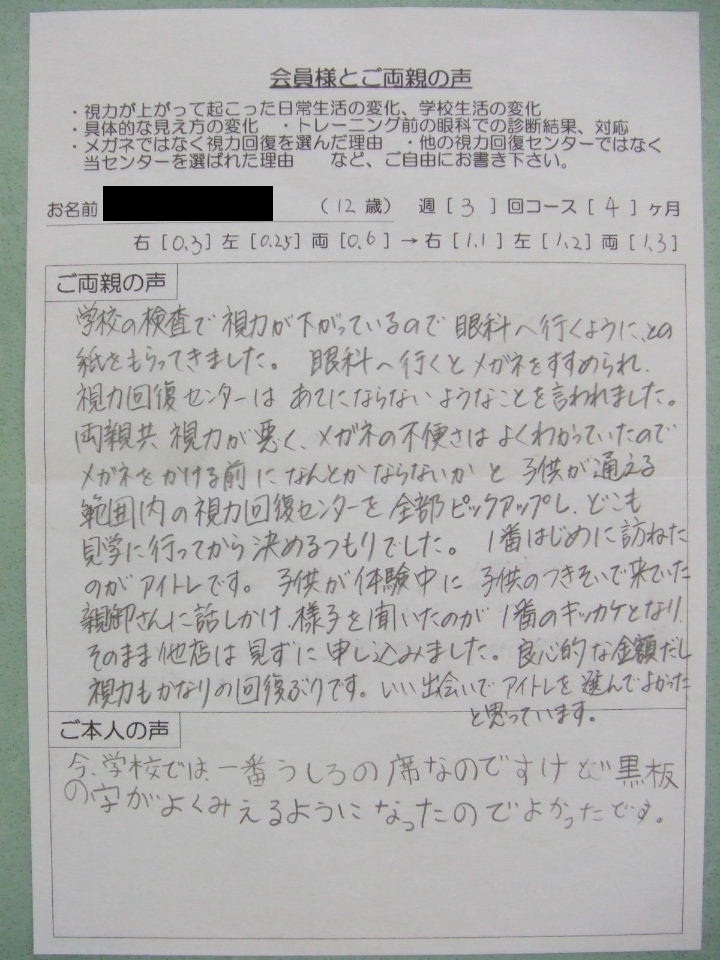 会員様とご両親の声
・視力が上がって起こった日常生活の変化、学校生活の変化
・具体的な見え方の変化 ・トレーニング前の眼科での診断結果、対応
・メガネではなく視力回復を選んだ理由 ・他の視力回復センターではなく
当センターを選ばれた理由 など、ご自由にお書き下さい。
お名前 (12歳) 週[3]回コース[4]ヶ月
右[0.3]左[0.25]両[0.6]→右[1.1]左[1.2]両[1.3]
ご両親の声
学校の検査で視力が下がっているので眼科へ行くように、との
紙をもらってきました。 眼科へ行くとメガネをすすめられ、
視力回復センターは あてにならないようなことを言われました。
両親共 視力が悪く、メガネの不便さは よくわかっていたので
メガネをかける前に なんとかならないかと 子供が通える
範囲内の視力回復センターを 全部ピックアップし、どこも
見学に行ってから決めるつもりでした。 1番はじめに訪ねた
のがアイトレです。 子供が体験中に 子供のつきそいで来ていた
親御さんに話しかけ、様子を聞いたのが 1番のキッカケとなり、
そのまま他店は見ずに申し込みました。良心的な金額だし
視力もかなりの回復ぶりです。いい出会いでアイトレを選んでよかった
と思っています。
ご本人の声
今、学校では、一番うしろの席なのですけど黒板
の字がよくみえるようになったのでよかったです。